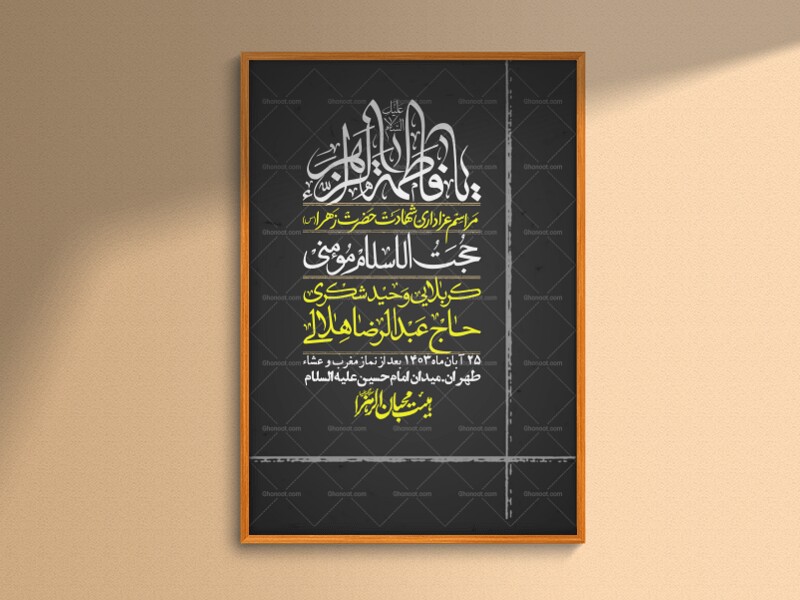 یا فاطمة الزهراء
علیها السلام
مراسم عزاداری شهادت حضرت زهرا (س)
حجت الاسلام مؤمنی
کربلایی وحید شکری
حاج عبدالرضا هلالی
۲۵ آبان ماه ۱۴۰۳ بعد از نماز مغرب و عشاء
طهران.میدان امام حسین علیه السلام
هیئت محبان الزهرا
Ghonoot.com